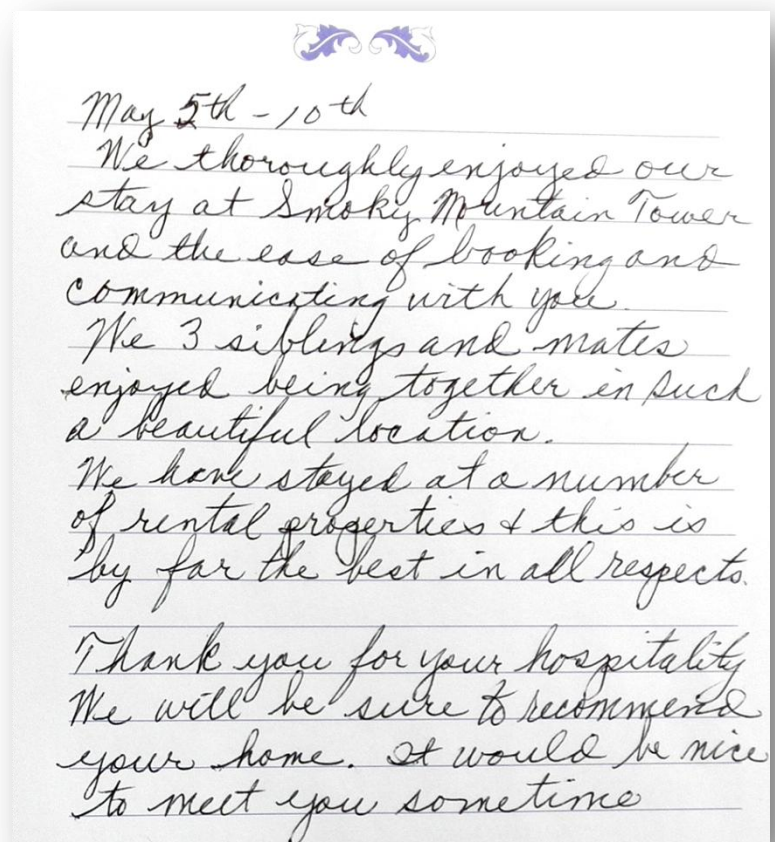 May 5th - 10th
We thoroughly enjoyed our
stay at Smoky Mountain Tower
and the ease of booking and
communicating with you.
We 3 siblings and mates
enjoyed being together in such
a beautiful location.
We have stayed at a number
of rental properties & this is
by far the best in all respects.
Thank you for your hospitality
We will be sure to recommend
your home. It would be nice
to meet you sometime